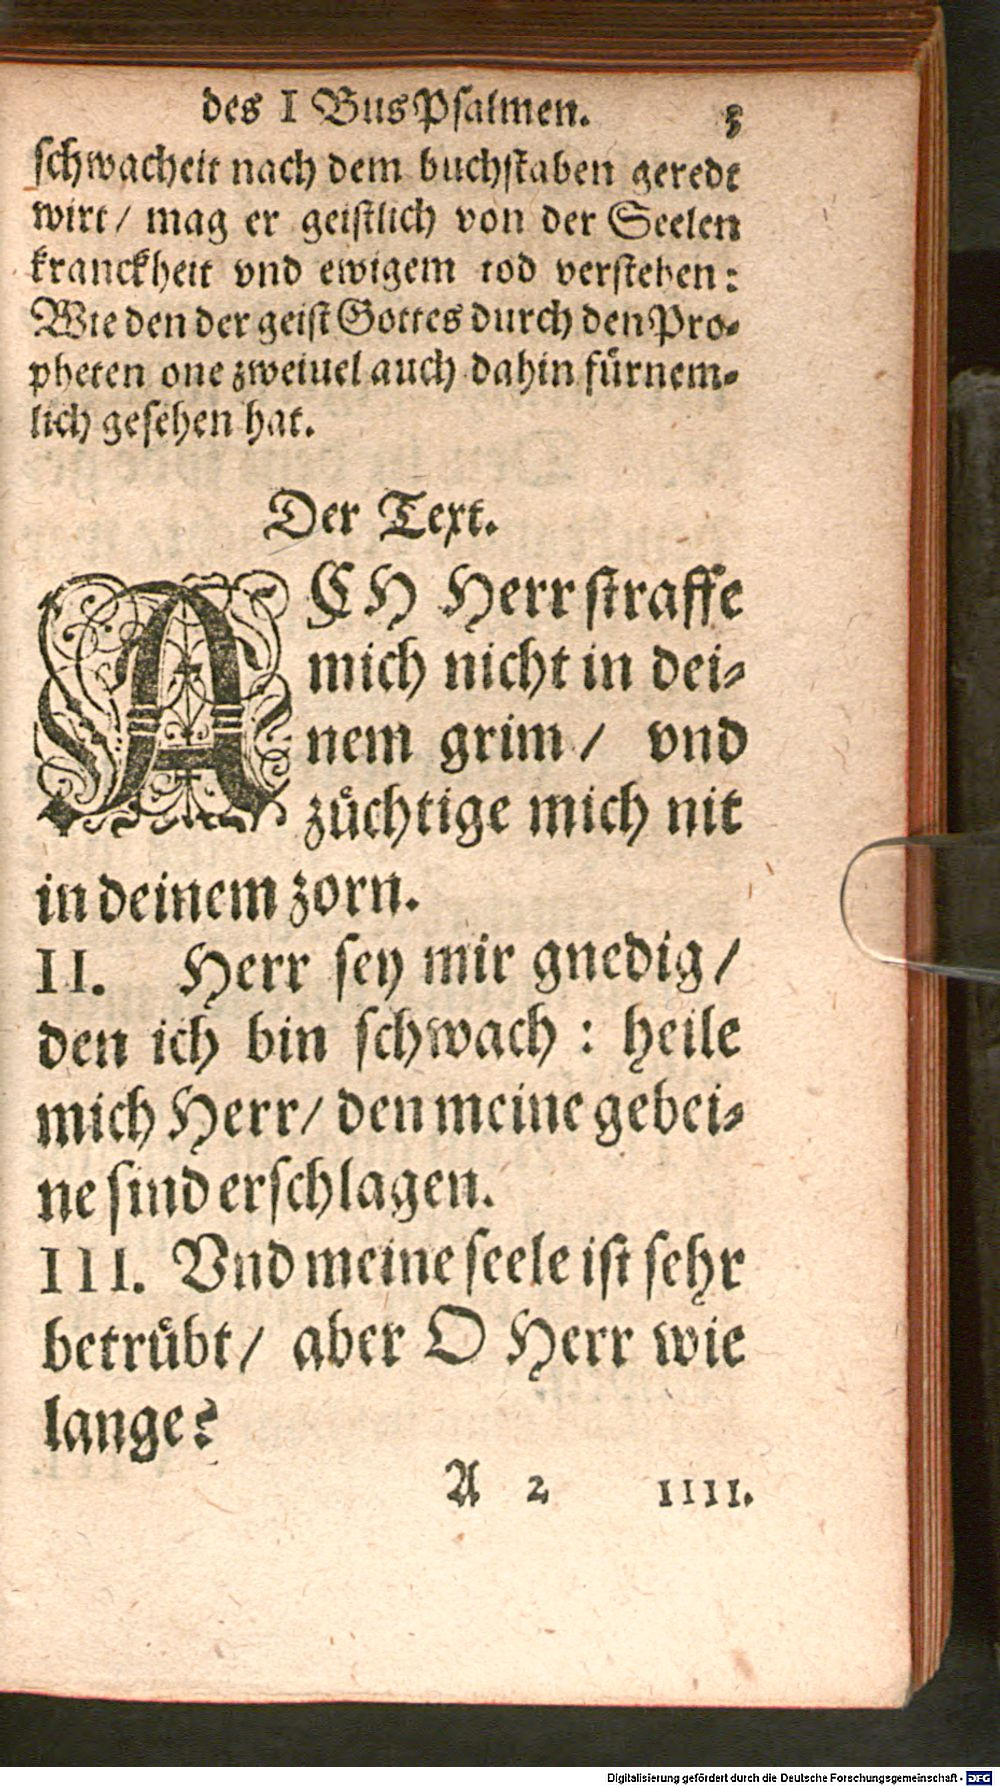 des I BusPsalmen. 3
schwacheit nach dem buchstaben geredt
wirt/ mag er geistlich von der Seelen
kranckheit vnd ewigem tod verstehen:
Wie den der geist Gottes durch den Pro-
pheten one zweiuel auch dahin fürnem-
lich gesehen hat.
Der Text.
ACH Herr straffe
mich nicht in dei-
nem grim/ vnd
zůchtige mich nit
in deinem zorn.
II. Herr sey mir gnedig/
den ich bin schwach: heile
mich Herr/ den meine gebei-
ne sind erschlagen.
III. Vnd meine seele ist sehr
betrůbt/ aber O Herr wie
lange?
A 2 IIII.
Digitalisierung gefördert durch die Deutsche Forschungsgemeinschaft - DFG